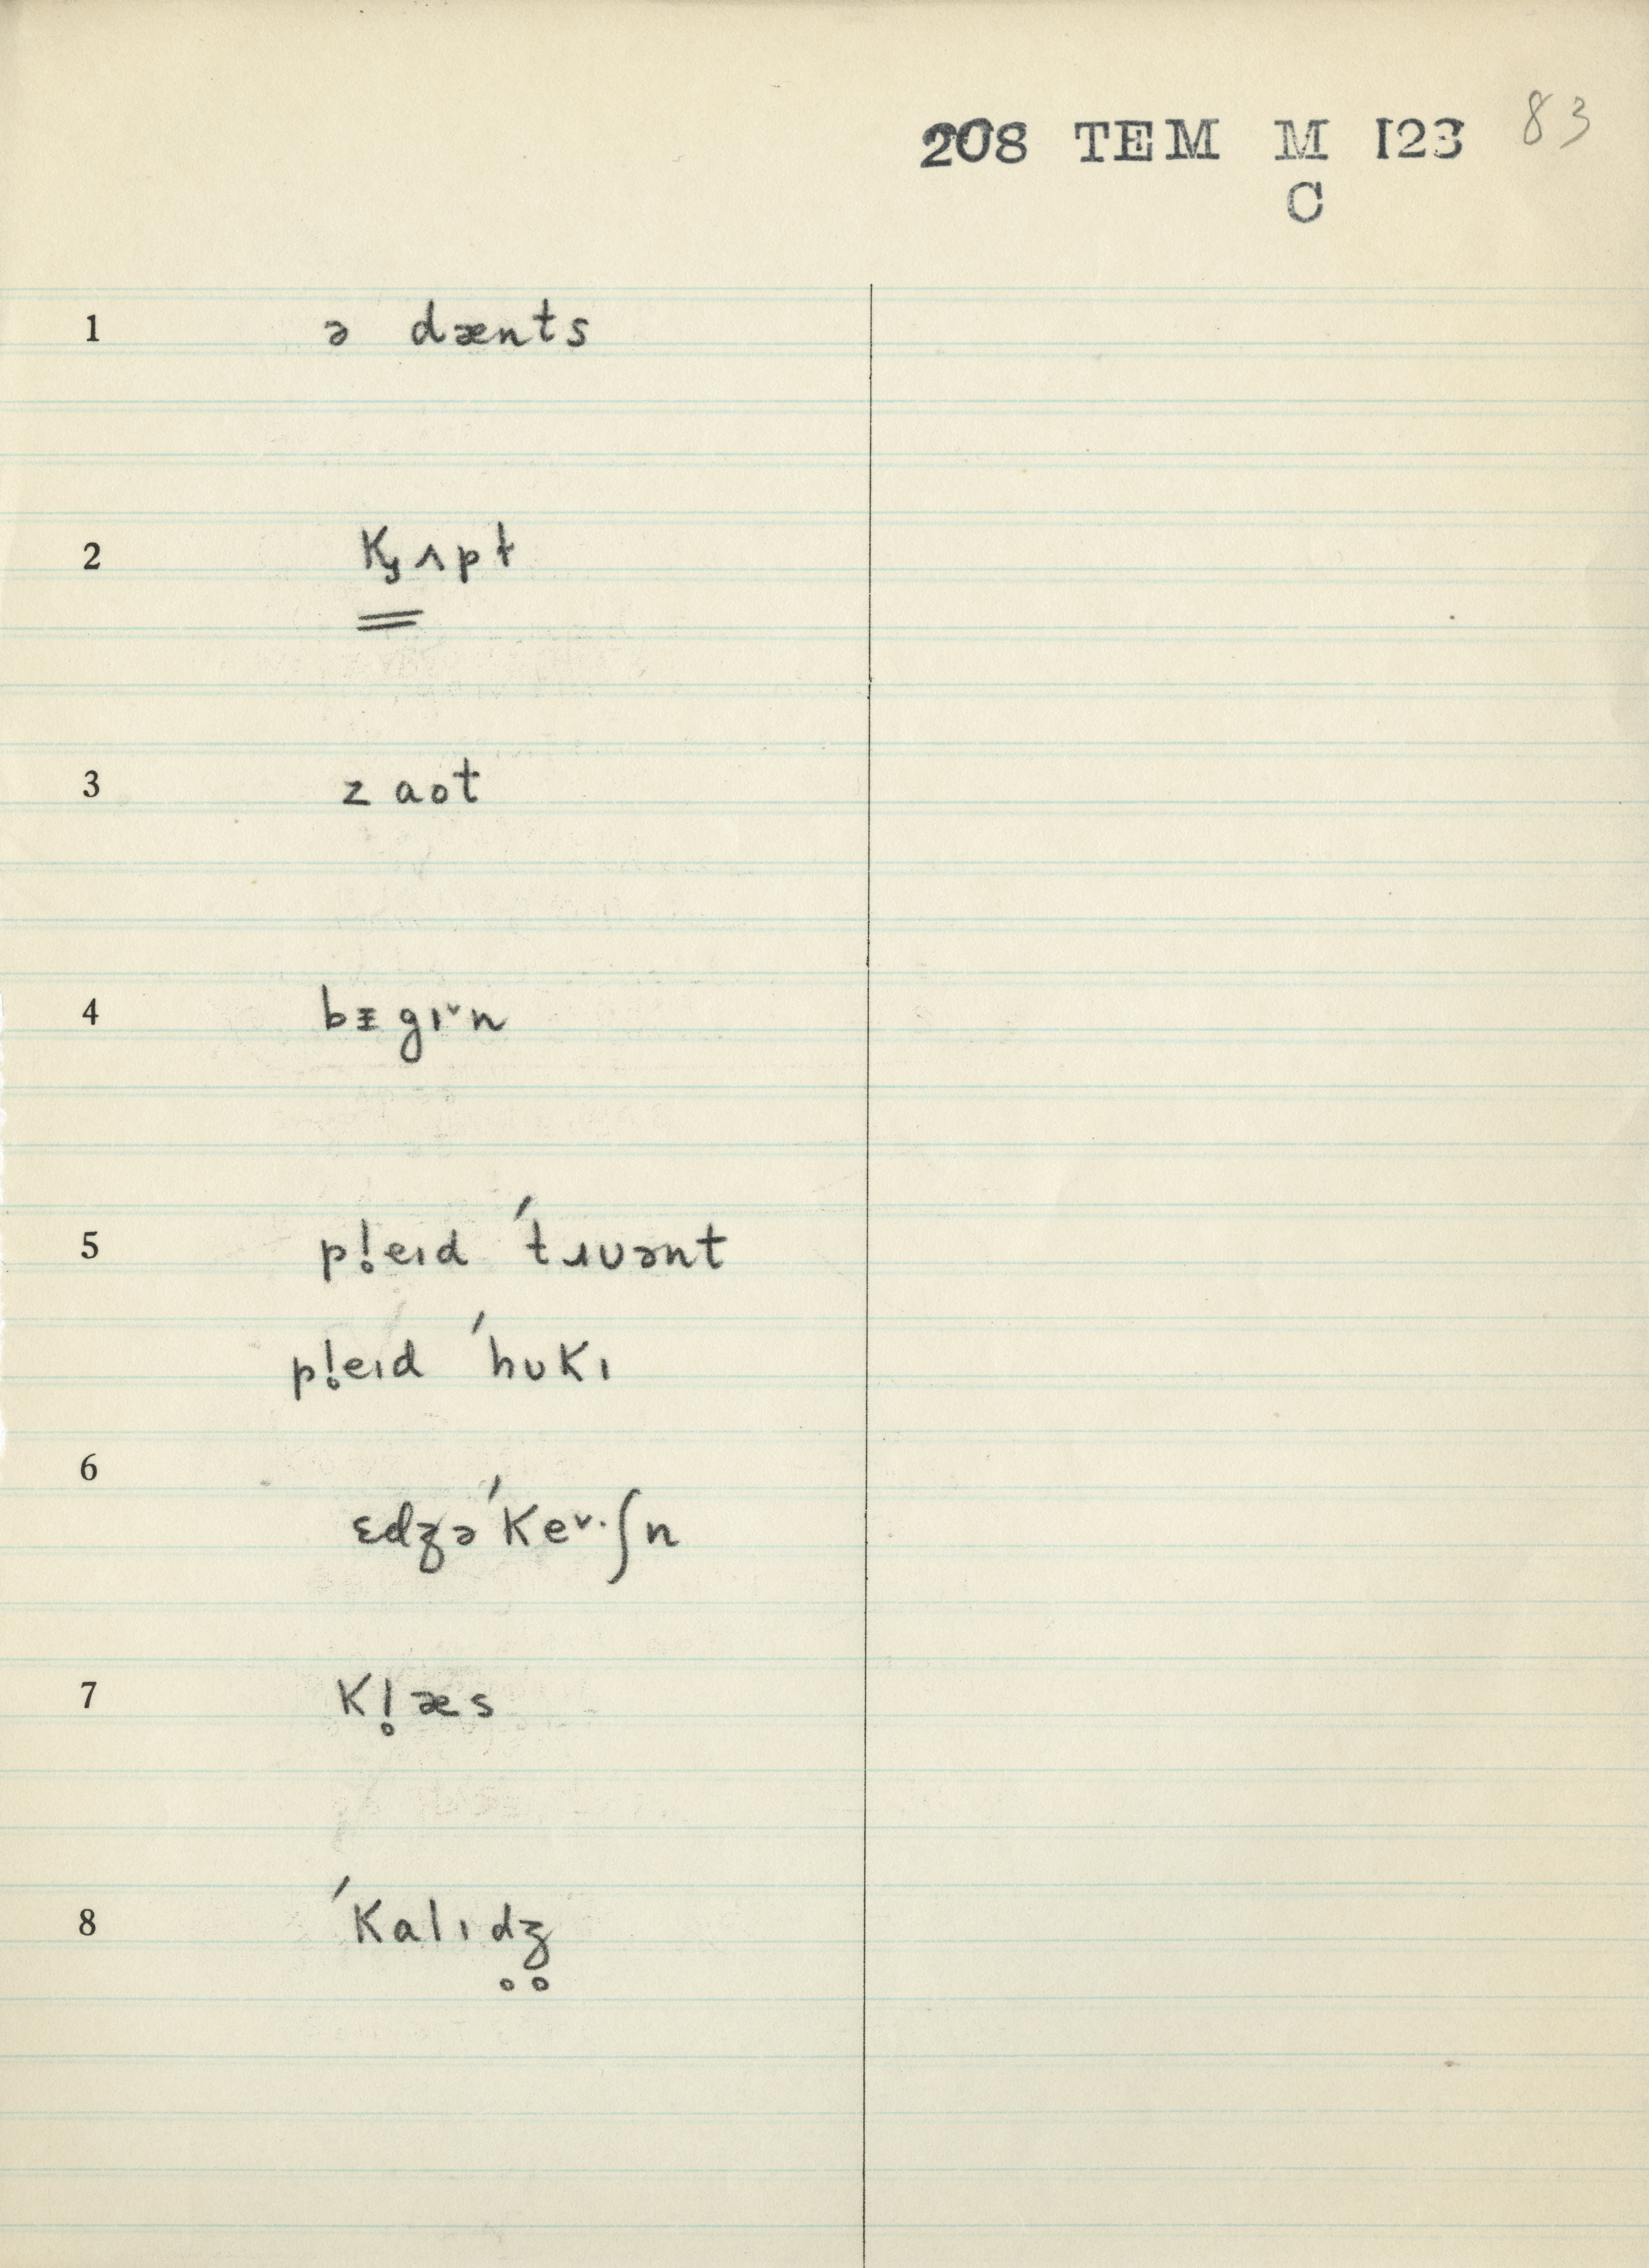 208 TEM M I23 83
C
1 ə dænts
2 kʒʌpt
3 zaot
4 bᵻgɪ˅n
5 pl̥eɪd ˊtɹuənt
pl̥eɪd ˊhʊkɪ
6 ɛdʒəˊke˅·ʃn
7 kl̥æs
8 ˊkalɪd̥ʒ̥